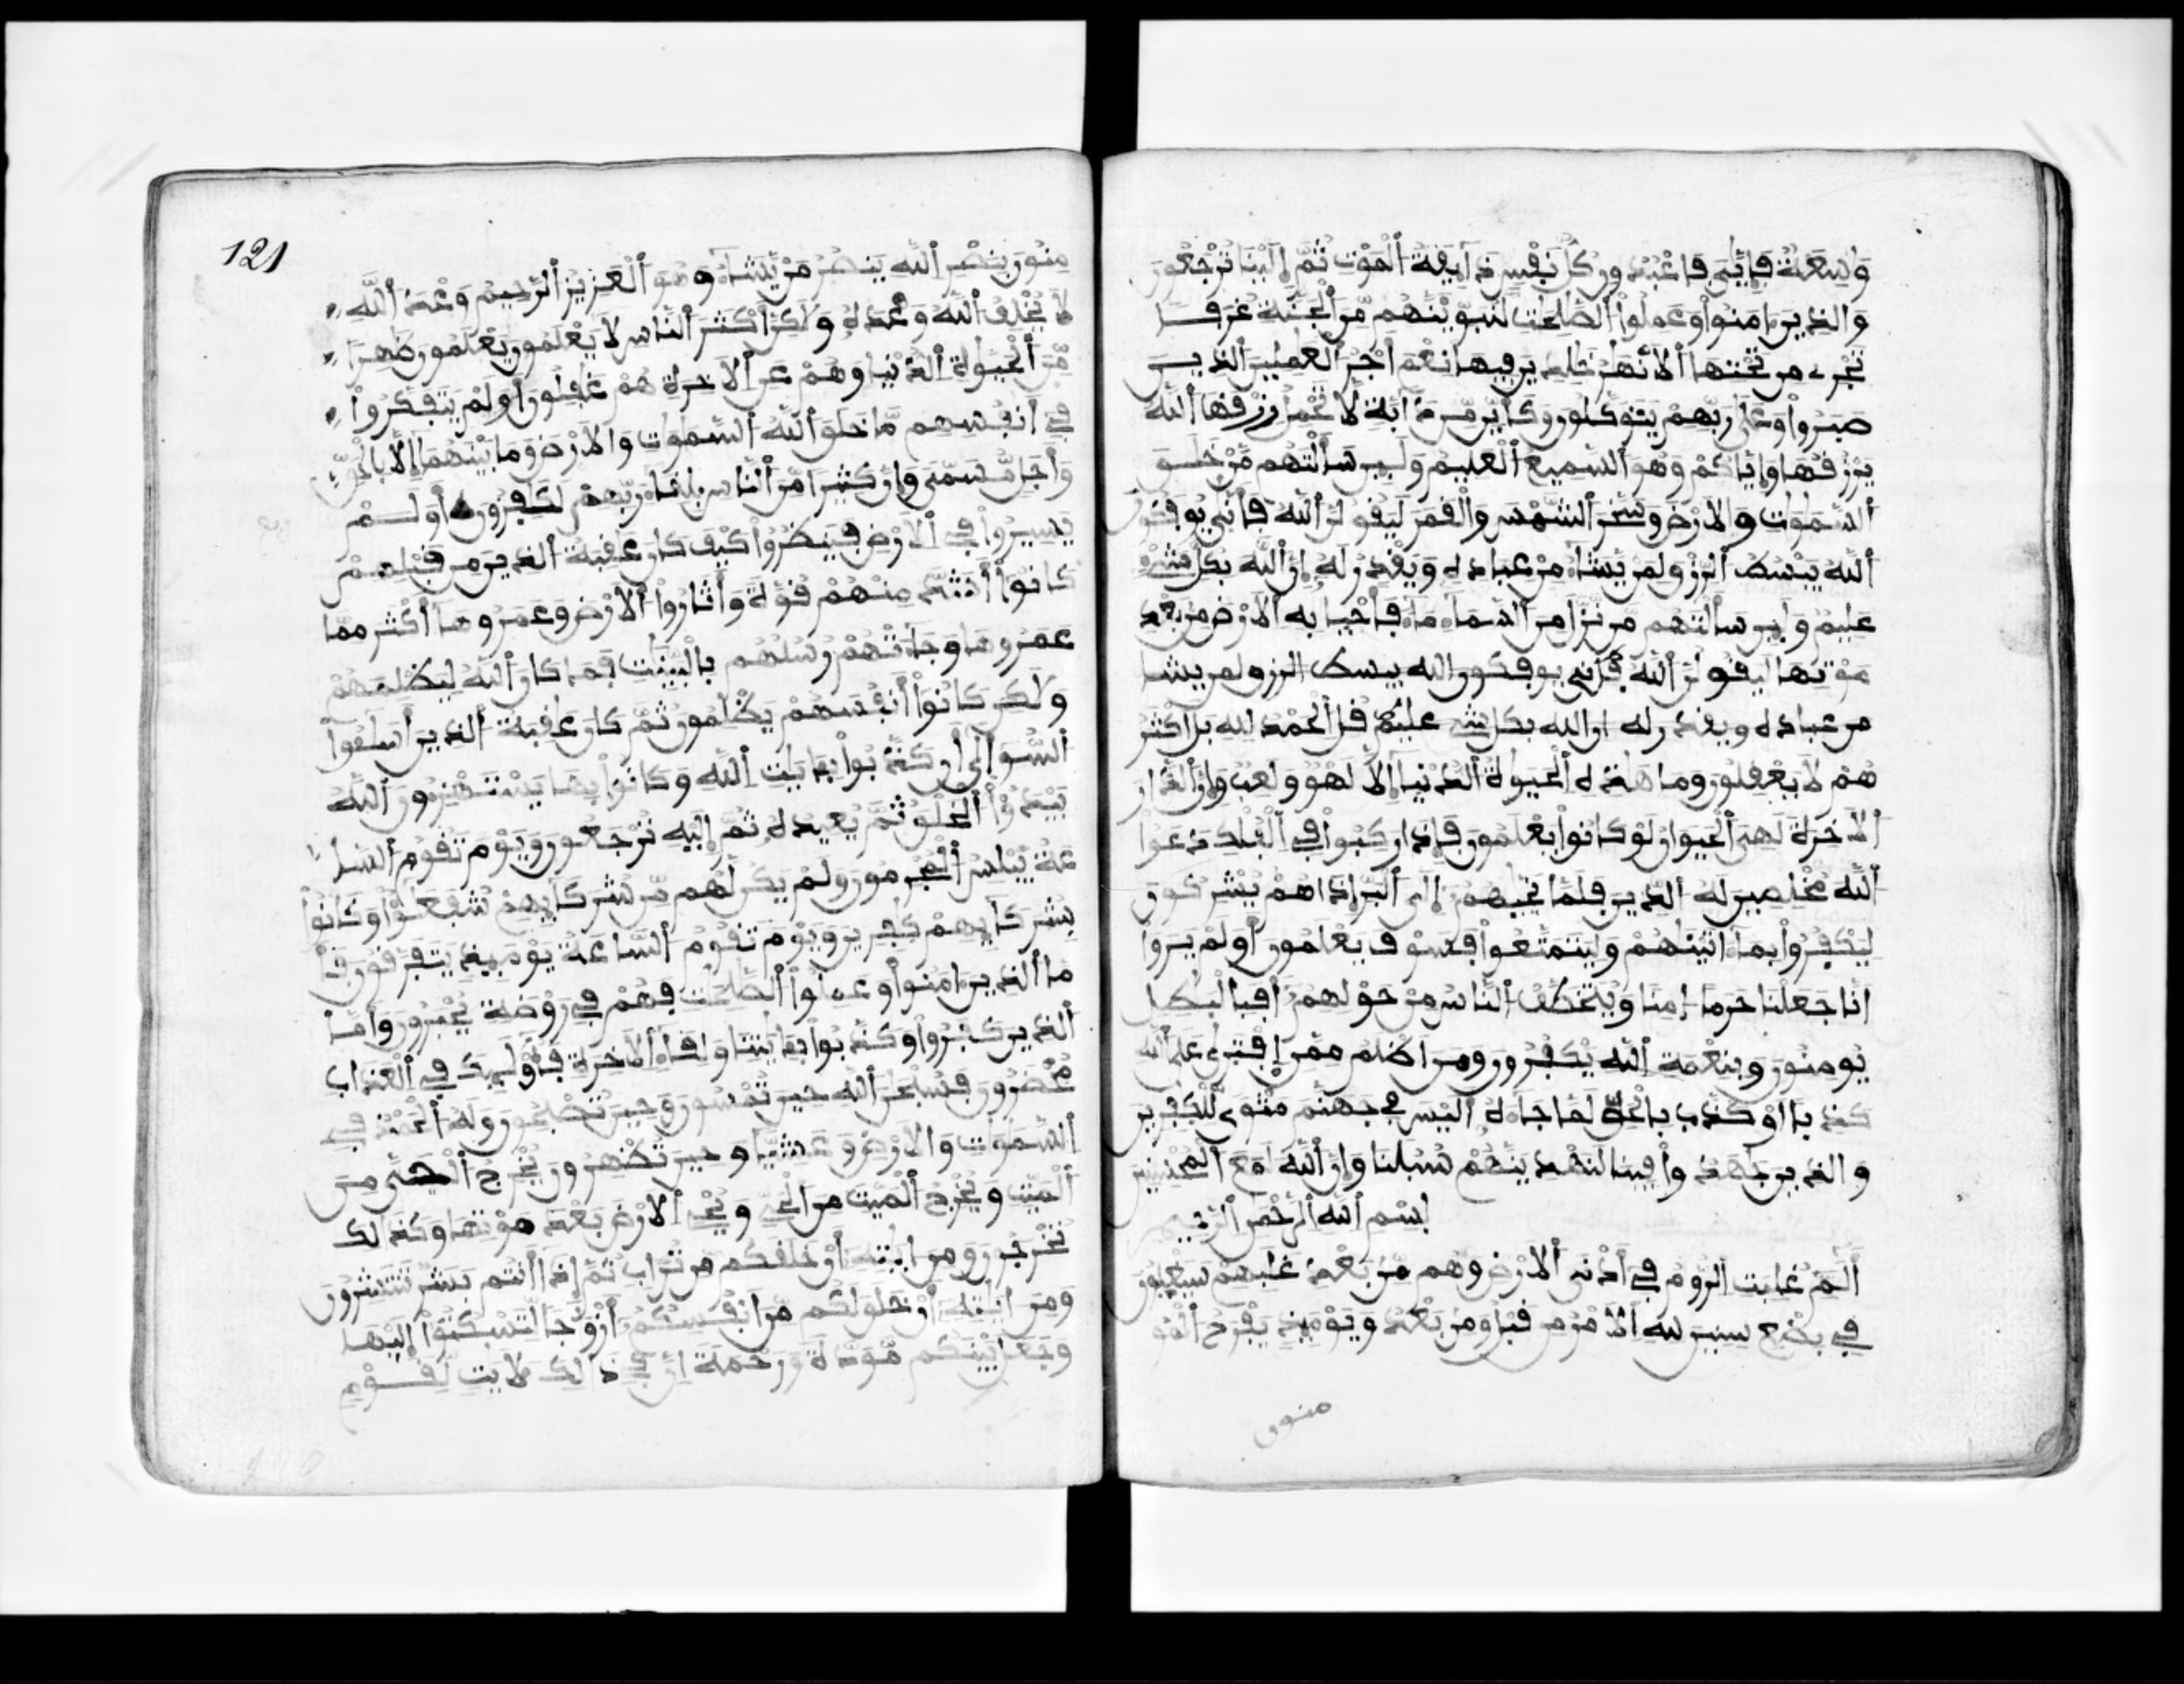 وَاسِعَةٌ فَإِيَّٰيَ فَاعْبُدُونِ كُلُّ نَفْسٍ ذَآئِقَةُ اَ۬لْمَوْتِ ثُمَّ إِلَيْنَا تُرْجَعُونَ
وَالذِينَ ءَامَنُواْ وَعَمِلُواْ اُ۬لصَّٰلِحَٰتِ لَنُبَوِّيَنَّهُم مِّنَ اَ۬لْجَنَّةِ غُرَفاً
تَجْرِے مِن تَحْتِهَا اَ۬لَانْهَٰرُ خَٰلِدِينَ فِيهَا نِعْمَ أَجْرُ اُ۬لْعَٰمِلِينَ اَ۬لذِينَ
صَبَرُواْ وَعَلَىٰ رَبِّهِمْ يَتَوَكَّلُونَ وَكَأَيِّن مِّن دَآبَّةٍ لَّا تَحْمِلُ رِزْقَهَا اَ۬للَّهُ
يَرْزُقُهَا وَإِيَّاكُمْ وَهُوَ اَ۬لسَّمِيعُ اُ۬لْعَلِيمُ وَلَئِن سَأَلْتَهُم مَّنْ خَلَقَ
اَ۬لسَّمَٰوَٰتِ وَالَارْضَ وَسَخَّرَ اَ۬لشَّمْسَ وَالْقَمَرَ لَيَقُولُنَّ اَ۬للَّهُ فَأَنَّىٰ يُوفَكُونَ
اَ۬للَّهُ يَبْسُطُ اُ۬لرِّزْقَ لِمَنْ يَّشَآءُ مِنْ عِبَادِهِ وَيَقْدِرُ لَهُ إِنَّ اَ۬للَّهَ بِكُلِّ شَےْءٍ
عَلِيمٌ وَلَئِن سَأَلْتَهُم مَّن نَّزَّلَ مِنَ اَ۬لسَّمَآءِ مَآءً فَأَحْيَا بِهِ اِ۬لَارْضَ مِنۢ بَعْدِ
مَوْتِهَا لَيَقُولُنَّ اَ۬للَّهُ فَأَنَّىٰ يوفكون الله يبسط الرزق لمن يشا
من عباده ويقدر له ان الله بكل شےء عليم قُلِ اِ۬لْحَمْدُ لِلهِ بَلَ اَكْثَرُ
هُمْ لَا يَعْقِلُونَ وَمَا هَٰذِهِ اِ۬لْحَيَوٰةُ اُ۬لدُّنْيَا إِلَّا لَهْوٌ وَلَعِبٌ وَإِنَّ اَ۬لدَّارَ
اَ۬لَاخِرَةَ لَهِيَ اَ۬لْحَيَوَانُ لَوْ كَانُواْ يَعْلَمُونَ فَإِذَا رَكِبُواْ فِے اِ۬لْفُلْكِ دَعَوُاْ
اُ۬للَّهَ مُخْلِصِينَ لَهُ اُ۬لدِّينَ فَلَمَّا نَجَّيٰهُمُ إِلَى اَ۬لْبَرِّ إِذَا هُمْ يُشْرِكُونَ
لِيَكْفُرُواْ بِمَا ءَاتَيْنَٰهُمْ وَلِيَتَمَتَّعُواْ فَسَوْفَ يَعْلَمُونَ أَوَلَمْ يَرَوَاْ
اَنَّا جَعَلْنَا حَرَماً اٰمِناً وَيُتَخَطَّفُ اُ۬لنَّاسُ مِنْ حَوْلِهِمُ أَفَبِالْبَٰطِلِ
يُومِنُونَ وَبِنِعْمَةِ اِ۬للَّهِ يَكْفُرُونَ وَمَنَ اَظْلَمُ مِمَّنِ اِ۪فْتَرَىٰ عَلَى اَ۬للَّهِ
كَذِباً اَوْ كَذَّبَ بِالْحَقِّ لَمَّا جَآءَهُ أَلَيْسَ فِے جَهَنَّمَ مَثْوىً لِّلْكٰفِرِينَ
وَالذِينَ جَٰهَدُواْ فِينَا لَنَهْدِيَنَّهُمْ سُبُلَنَا وَإِنَّ اَ۬للَّهَ لَمَعَ اَ۬لْمُحْسِنِينَ
بِسْمِ اِ۬للَّهِ اِ۬لرَّحْمَٰنِ اِ۬لرَّحِيمِ
أَلَٓمِّٓ غُلِبَتِ اِ۬لرُّومُ فِے أَدْنَى اَ۬لَارْضِ وَهُم مِّنۢ بَعْدِ غَلَبِهِمْ سَيَغْلِبُونَ
فِے بِضْعِ سِنِينَ لِلهِ اِ۬لَامْرُ مِن قَبْلُ وَمِنۢ بَعْدُ وَيَوْمَئِذٍ يَفْرَحُ اُ۬لْمُو
منون
121
مِنُونَ بِنَصْرِ اِ۬للَّهِ يَنصُرُ مَنْ يَّشَآءُ وَهُوَ اَ۬لْعَزِيزُ اُ۬لرَّحِيمُ وَعْدَ اَ۬للَّهِ
لَا يُخْلِفُ اُ۬للَّهُ وَعْدَهُ وَلَٰكِنَّ أَكْثَرَ اَ۬لنَّاسِ لَا يَعْلَمُونَ يَعْلَمُونَ ظَٰهِراً
مِّنَ اَ۬لْحَيَوٰةِ اِ۬لدُّنْيَا وَهُمْ عَنِ اِ۬لَاخِرَةِ هُمْ غَٰفِلُونَ أَوَلَمْ يَتَفَكَّرُواْ
فِے أَنفُسِهِم مَّا خَلَقَ اَ۬للَّهُ اُ۬لسَّمَٰوَٰتِ وَالَارْضَ وَمَا بَيْنَهُمَا إِلَّا بِالْحَقِّ
وَأَجَلٍ مُّسَمّىً وَإِنَّ كَثِيراً مِّنَ اَ۬لنَّاسِ بِلِقَآءِ رَبِّهِمْ لَكَٰفِرُونَ أَوَلَمْ
يَسِيرُواْ فِے اِ۬لَارْضِ فَيَنظُرُواْ كَيْفَ كَانَ عَٰقِبَةُ اُ۬لذِينَ مِن قَبْلِهِمْ
كَانُواْ أَشَدَّ مِنْهُمْ قُوَّةً وَأَثَارُواْ اُ۬لَارْضَ وَعَمَرُوهَا أَكْثَرَ مِمَّا
عَمَرُوهَا وَجَآءَتْهُمْ رُسُلُهُم بِالْبَيِّنَٰتِ فَمَا كَانَ اَ۬للَّهُ لِيَظْلِمَهُمْ
وَلَٰكِن كَانُواْ أَنفُسَهُمْ يَظْلِمُونَ ثُمَّ كَانَ عَٰقِبَةُ اُ۬لذِينَ أَسَٰٓـُٔواْ
اُ۬لسُّوأَىٰ أَن كَذَّبُواْ بِـَٔايَٰتِ اِ۬للَّهِ وَكَانُواْ بِهَا يَسْتَهْزِءُونَ اَ۬للَّهُ
يَبْدَؤُاْ اُ۬لْخَلْقَ ثُمَّ يُعِيدُهُ ثُمَّ إِلَيْهِ تُرْجَعُونَ وَيَوْمَ تَقُومُ اُ۬لسَّا
عَةُ يُبْلِسُ اُ۬لْمُجْرِمُونَ وَلَمْ يَكُن لَّهُم مِّن شُرَكَآئِهِمْ شُفَعَٰٓؤُاْ وَكَانُواْ
بِشُرَكَآئِهِمْ كٰفِرِينَ وَيَوْمَ تَقُومُ اُ۬لسَّاعَةُ يَوْمَئِذٍ يَتَفَرَّقُونَ فَأَ
مَّا اَ۬لذِينَ ءَامَنُواْ وَعَمِلُواْ اُ۬لصَّٰلِحَٰتِ فَهُمْ فِے رَوْضَةٍ يُحْبَرُونَ وَأَمَّا
اَ۬لذِينَ كَفَرُواْ وَكَذَّبُواْ بِـَٔايَٰتِنَا وَلِقَآءِ اِ۬لَاخِرَةِ فَأُوْلَٰٓئِكَ فِے اِ۬لْعَذَابِ
مُحْضَرُونَ فَسُبْحَٰنَ اَ۬للَّهِ حِينَ تُمْسُونَ وَحِينَ تُصْبِحُونَ وَلَهُ اُ۬لْحَمْدُ فِے
اِ۬لسَّمَٰوَٰتِ وَالَارْضِ وَعَشِيّاً وَحِينَ تُظْهِرُونَ يُخْرِجُ اُ۬لْحَيَّ مِنَ
اَ۬لْمَيِّتِ وَيُخْرِجُ اُ۬لْمَيِّتَ مِنَ اَ۬لْحَيِّ وَيُحْىِ اِ۬لَارْضَ بَعْدَ مَوْتِهَا وَكَذَٰلِكَ
تُخْرَجُونَ وَمِنَ اٰيَٰتِهِ أَنْ خَلَقَكُم مِّن تُرَابٍ ثُمَّ إِذَا أَنتُم بَشَرٌ تَنتَشِرُونَ
وَمِنَ اٰيَٰتِهِ أَنْ خَلَقَ لَكُم مِّنَ اَنفُسِكُمُ أَزْوَٰجاً لِّتَسْكُنُواْ إِلَيْهَا
وَجَعَلَ بَيْنَكُم مَّوَدَّةً وَرَحْمَةً إِنَّ فِے ذَٰلِكَ لَأٓيَٰتٍ لِّقَوْمٍ